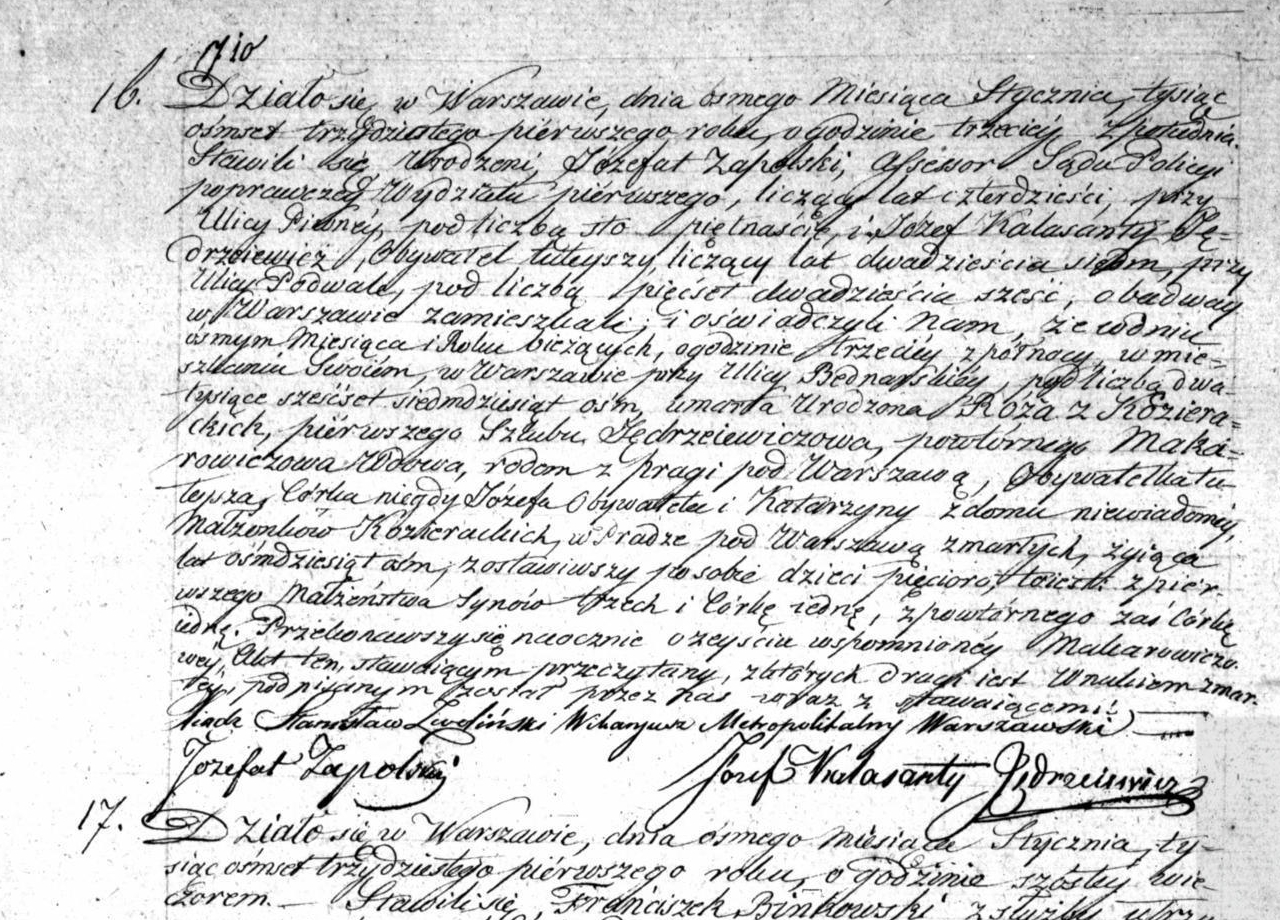 7io
16. Działo się w Warszawie, dnia ósmego Miesiąca Stycznia, tysiąc
ośmset trzydziestego piérwszego roku, o godzinie trzeciéy z południa.
Stawili się, Urodzeni, Józefat Zapolski, Assessor Sądu Policyi
poprawczey Wydziału piérwszego, liczący lat czterdzieści, przy
Ulicy Piwnéy, pod liczbą sto piętnaście, i Józef Kalasanty Ję=
drzeiewicz, Obywatel tuteyszy, liczący lat dwadzieścia siedm, przy
Ulicy Podwale, pod liczbą pięćset dwadzieścia sześć, obadway
w Warszawie zamieszkali; i oświadczyli Nam, że w dniu
ósmym Miesiąca i Roku bieżących, o godzinie trzeciéy z północy, w mie=
szkaniu Swoiém, w Warszawie przy Ulicy Bednarskiéy, pod liczbą dwa
tysiące sześćset siedmdziesiąt ośm, umarła Urodzona Róża z Koziera=
ckich, piérwszego Szlubu Jędrzeiewiczowa, powtórnego Maka=
rowiczowa Wdowa, rodem z Pragi pod Warszawą, Obywatelka tu
teysza, Córka niegdy Józefa Obywatela i Katarzyny z domu niewiadoméy,
Małżonków Kozierackich, w Pradze pod Warszawą zmarłych, żyiąca
lat ośmdziesiąt ośm, zostawiwszy po sobie dzieci pięcioro, to iest: z pier-
wszego Małżeństwa Synów trzech i Córkę iednę, z powtórnego zaś Córkę
iednę. Przekonawszy się naocznie o zeyściu wspomnionéy Makarowiczo
wéy, Akt ten, stawaiącym przeczytany, z których drugi iest Wnukiem zmar-
łéy, podpisanym został przez nas wraz z stawaiącemi.
Xiądz Stanisław Zwoliński Wikaryusz Metropolitalny Warszawski
Józefat Zapolski Józef Kalasanty Jędrzeiewicz
17. Działo się w Warszawie, dnia ósmego Miesiąca Stycznia, ty-
siąc ośmset trzydziestego piérwszego roku, o godzinie szóstey wie-
czorem. – Stawili się, Franciszek Binkowski